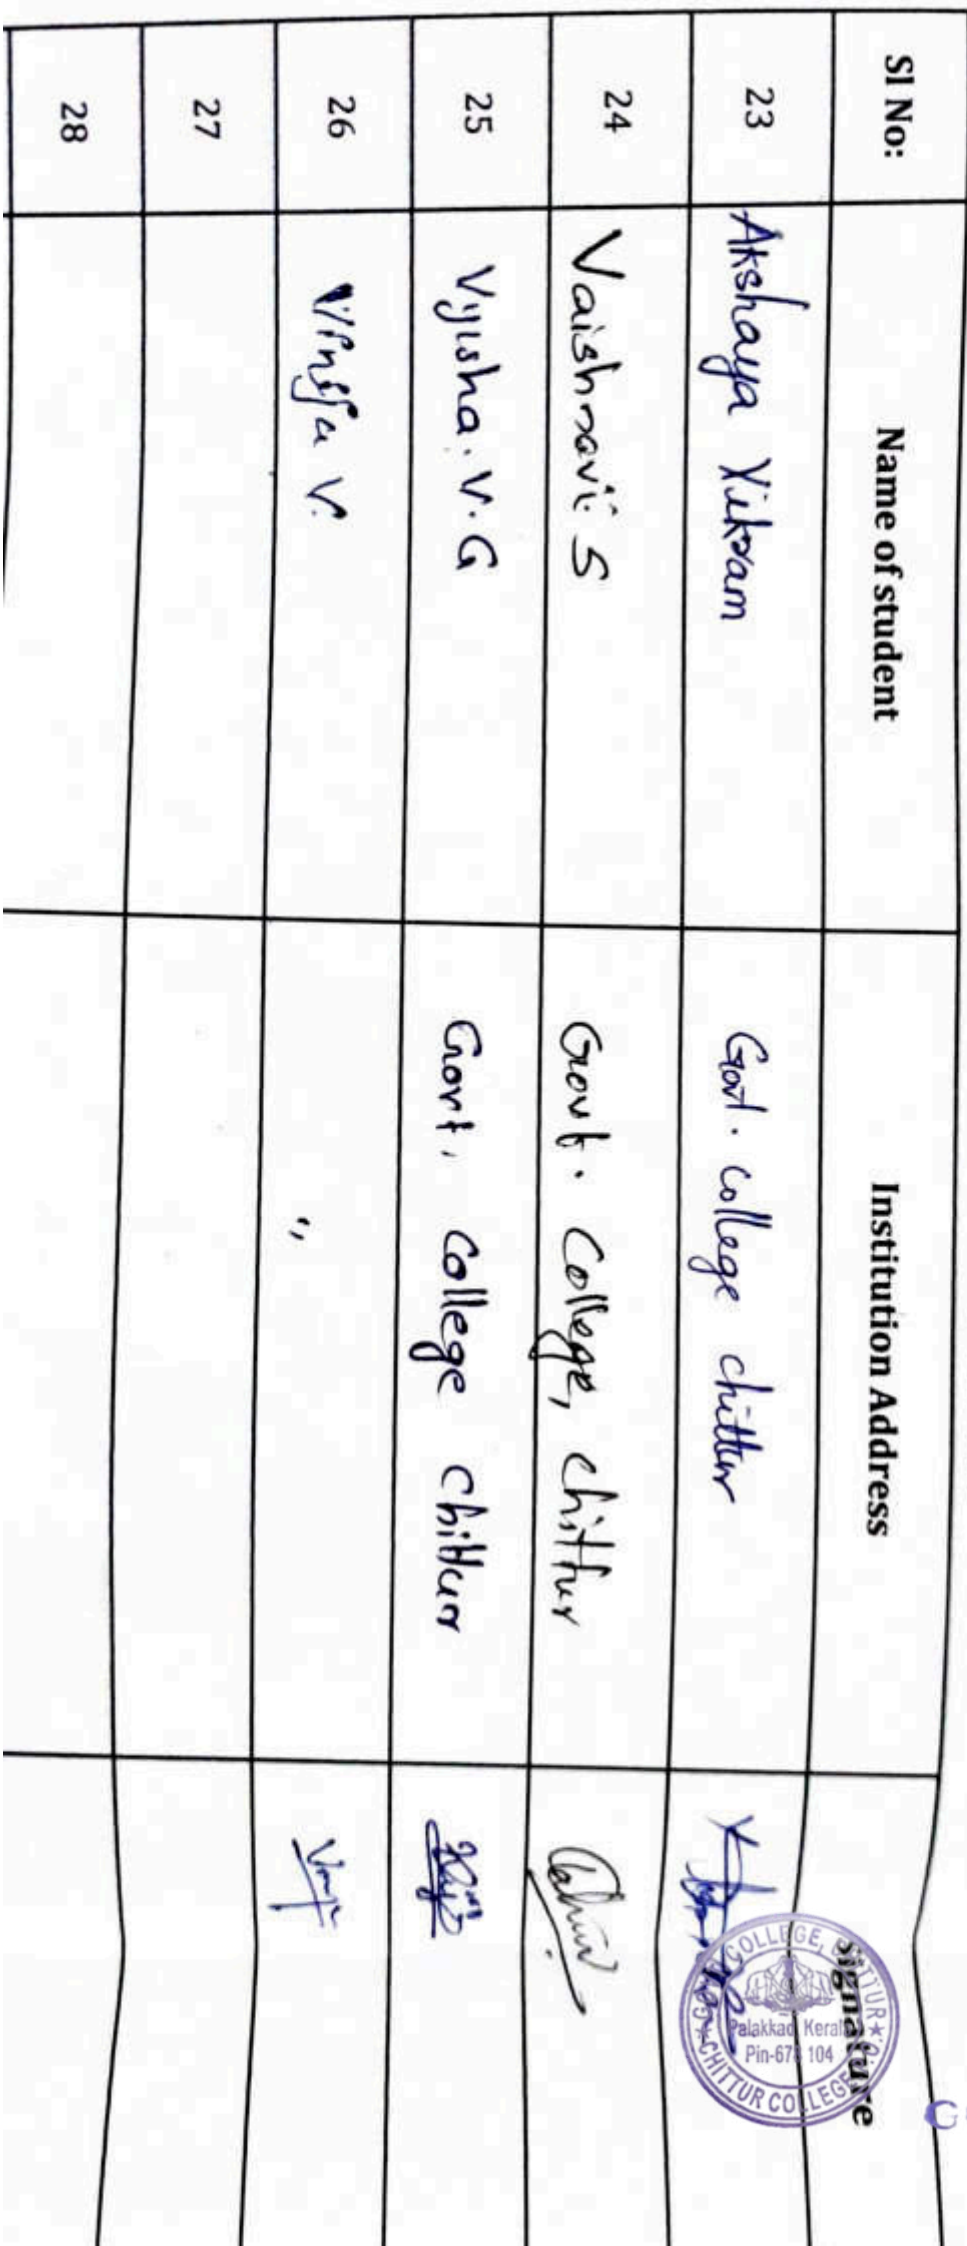 Sl No: Name of student Institution Address Signature
23 Akshaya Vikram Govt. college chittur
24 Vaishnavi. S Govt. College, chittur
25 Vyisha. V. G Govt, College Chittur
26 V. ,,
27
28
COLLEGE, CHITTUR
Palakkad Kerala
Pin-678 104
CHITTUR COLLEGE P.O.
G